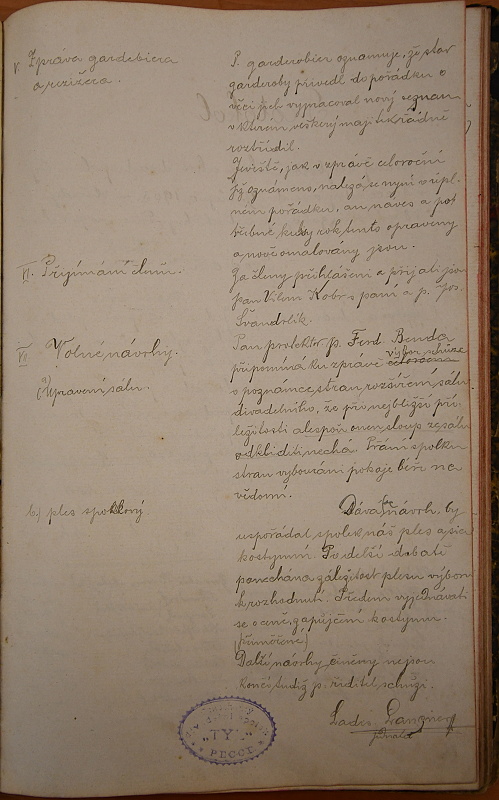 V. Zpráva garderobiera
a režiséra.
P. garderobier oznamuje, že stav
garderoby přivedl do pořádku a
věci jeb vypracoval nový seznam
v kterém veškerý majetek řádně
roztřídil.
Jeviště, jak v zprávě celoroční
již oznámeno, nalézá se nyní v úpl-
ném pořádku, an naves a pot
třebné kusy rok tento opraveny
a nově omalovány jsou.
VI. Přijímání členů.
Za členy přihlášeni a přijati jsou
pan Vilém Kobr s paní a p. Jos.
Švandrlík.
VII. Volné návrhy.
Pan protektor p. Ferd. Benda
připomíná ku zprávě výbor. schůze
a) Upravení sálu.
o poznámce stran rozšíření sálu
divadelního, že při nejbližší pří-
ležitosti alespoň onen sloup ze sálu
odkliditi nechá. Přání spolku
stran vybourání pokoje béře na
vědomí.
b.) ples spolkový
Dává se návrh, by
uspořádal spolek náš ples a sice
kostymní. Po delší debatě
ponechána záležitost plesu výboru
k rozhodnutí. Předem vyjednávati
se o ceně zapůjčení kostymu.
(přiměřené)
Další návrhy činěny nejsou
končí tudíž p. ředitel schůzi.
Ladis. Langner
"TYL"
PECCE